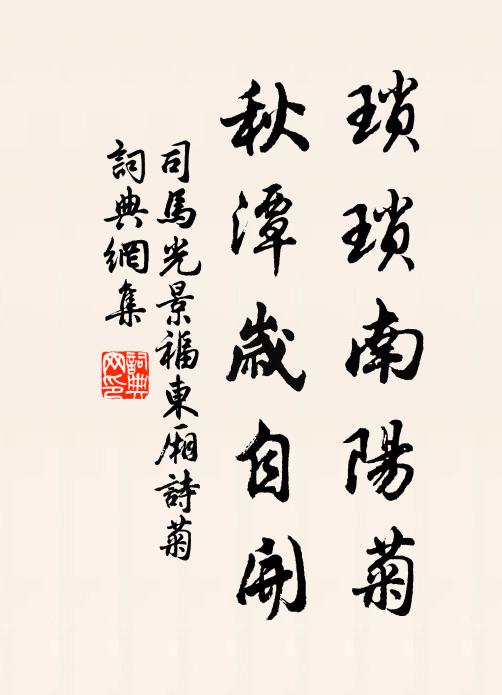 瑣瑣南陽菊
秋潭歲自開
司馬光景福東廂詩菊
詞典網集
詞典網印